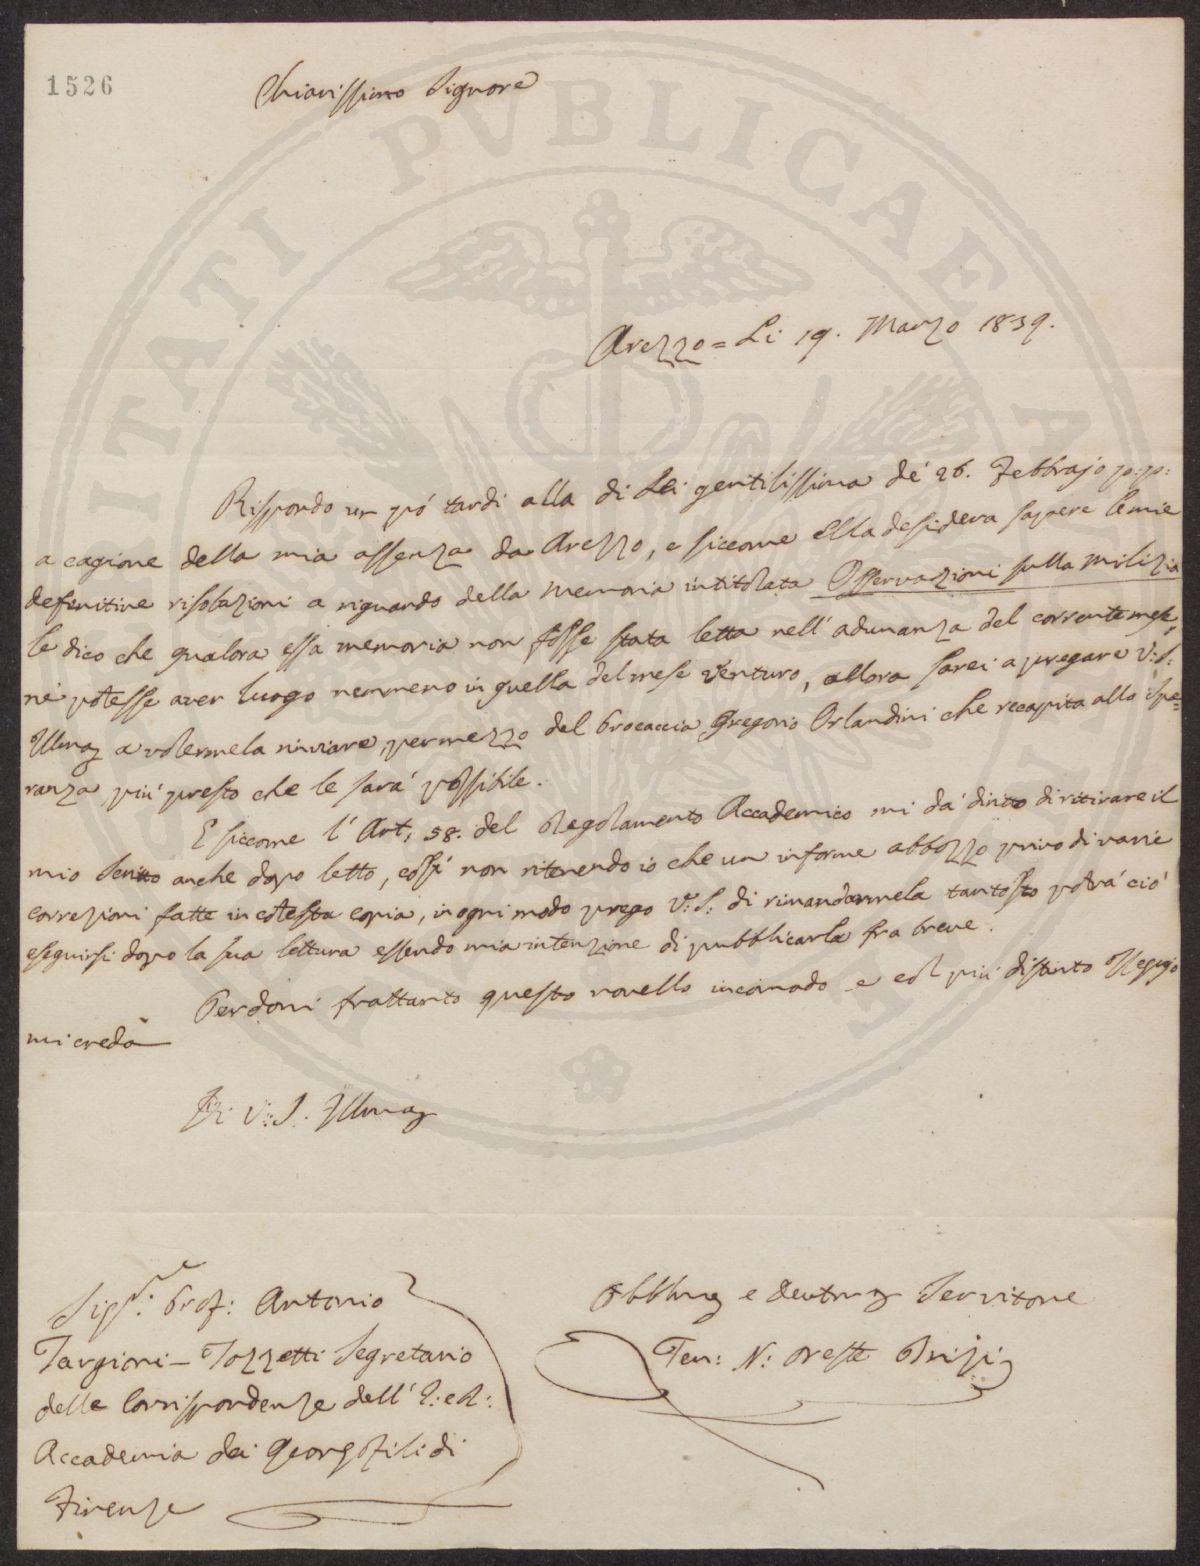 1526
Chiarissimo Signore
Arezzo = Li 19. Marzo 1839.
Rispondo un pó tardi alla di Lei gentilissima dé 26. Febbrajo p:p:
a cagione della mia assenza da Arezzo, e siccome Ella desidera sapere le mie
definitive risoluzioni a riguardo della memoria intitolata Osservazioni sulla milizia
le dico che qualora essa memoria non fosse stata letta nell'adunanza del corrente mese,
né potesse aver luogo nemmeno in quella del mese venturo, allora sarei a pregare V:S:
Illma a volermela rinviare, per mezzo del Procaccia Gregorio Orlandini che recapita allo Spe=
ranza più presto che le sará possibile.
E siccome l'Art. 58. del Regolamento Accademico mi dá diritto di ritirare il
mio Scritto anche dopo letto, cosí non ritenendo io che un informe abbozzo privo di varie
correzioni fatte in cotesta copia, in ogni modo prego V:S: di rimandarmela tantosto potrá ció
eseguirsi dopo la sua lettura essendo mia intenzione di pubblicarla fra breve.
Perdoni frattanto questo novello incomodo e col piú distinto Ossequio
mi creda
Di V:S. Illma
Sigr. Prof: Antonio
Targioni-Tozzetti Segretario
delle Corrispondenze dell'I: e R:
Accademia dei Georgofili di
Firenze
Obblmo e Devtmo Servitore
Ten: N: Oreste Brizi
PUBLICAE